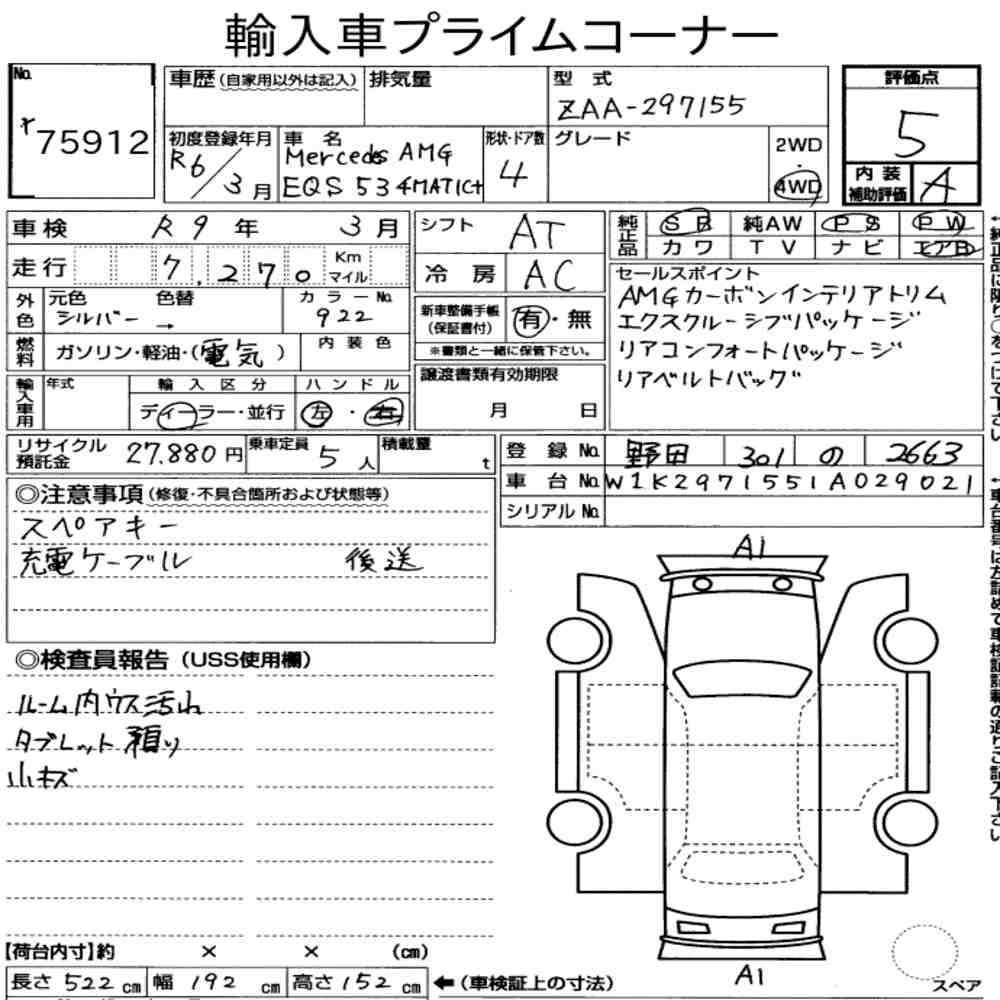 輸入車プライムコーナー
No.
75912
車歴(自家用以外は記入)
排気量
型 式
ZAA-297155
評価点
5
初度登録年月
R6/3月
車 名
Mercedes AMG
EQS 53 4MATIC+
形状・ドア数
4
グレード
2WD
・
4WD
内装
補助評価
A
車検 R9年 3月
シフト AT
純正品
SR 純AW PS PW
カワ TV ナビ エアB
走行 7,270 Km
マイル
冷房 AC
セールスポイント
AMGカーボンインテリアトリム
エクスクルーシブパッケージ
リアコンフォートパッケージ
リアベルトバッグ
外色
元色 色替 カラーNo.
シルバー → 922
新車整備手帳
(保証書付)
有・無
※書類と一緒に保管下さい。
燃料
ガソリン・軽油・(電気)
内装色
譲渡書類有効期限
月 日
輸入車用
年式
輸入区分
ディーラー・並行
ハンドル
左・右
リサイクル
預託金
27,880円
乗車定員
5人
積載量
t
登録No. 野田 301 の 2663
車台No. W1K2971551A029021
シリアルNo.
◎注意事項(修復・不具合箇所および状態等)
スペアキー
充電ケーブル 後送
◎検査員報告(USS使用欄)
ルーム内ウス汚れ
タブレット預り
小キズ
A1
A1
スペア
【荷台内寸】約 × × (cm)
長さ 522 cm 幅 192 cm 高さ 152 cm ←(車検証上の寸法)